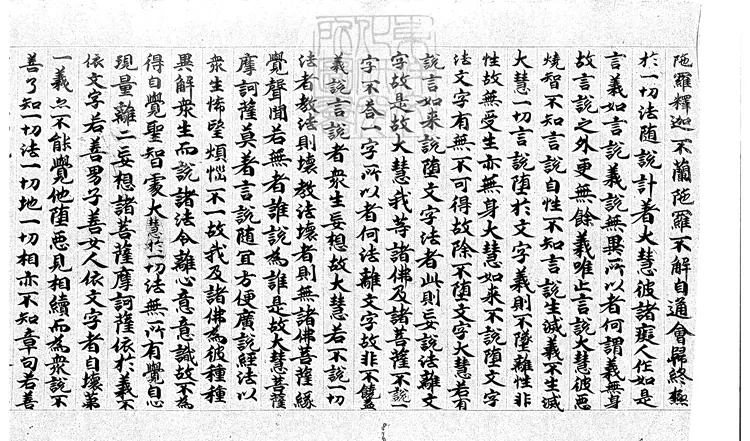 陁羅釋迦不蘭陁羅不解自通會歸終極
於一切法随說計着大慧彼諸癡人作如是
言義如言說義說無異所以者何謂義無身
故言說之外更無餘義唯止言說大慧彼惡
燒智不知言說自性不知言說生滅義不生滅
大慧一切言說堕於文字義則不墮離性非
性故無受生亦無身大慧如来不說堕文字
法文字有無不可得故除不堕文字大慧若有
說言如来說堕文字法者此則妄說法離文
字故是故大慧我等諸佛及諸菩薩不說一
字不荅一字所以者何法離文字故非不饒益
義說言說者衆生妄想故大慧若不說一切
法者教法則壊教法壊者則無諸佛菩薩縁
覺聲聞若無者誰說為誰是故大慧菩薩
摩訶薩莫着言說随宜方便廣說經法以
衆生悕望煩惱不一故我及諸佛為彼種種
異解衆生而說諸法令離心意意識故不為
得自覺聖智處大慧於一切法無所有覺自心
現量離二妄想諸菩薩摩訶薩依於義不
依文字若善男子善女人依文字者自壊苐
一義亦不能覺他堕惡見相續而為衆說不
善了知一切法一切地一切相亦不知章句若善